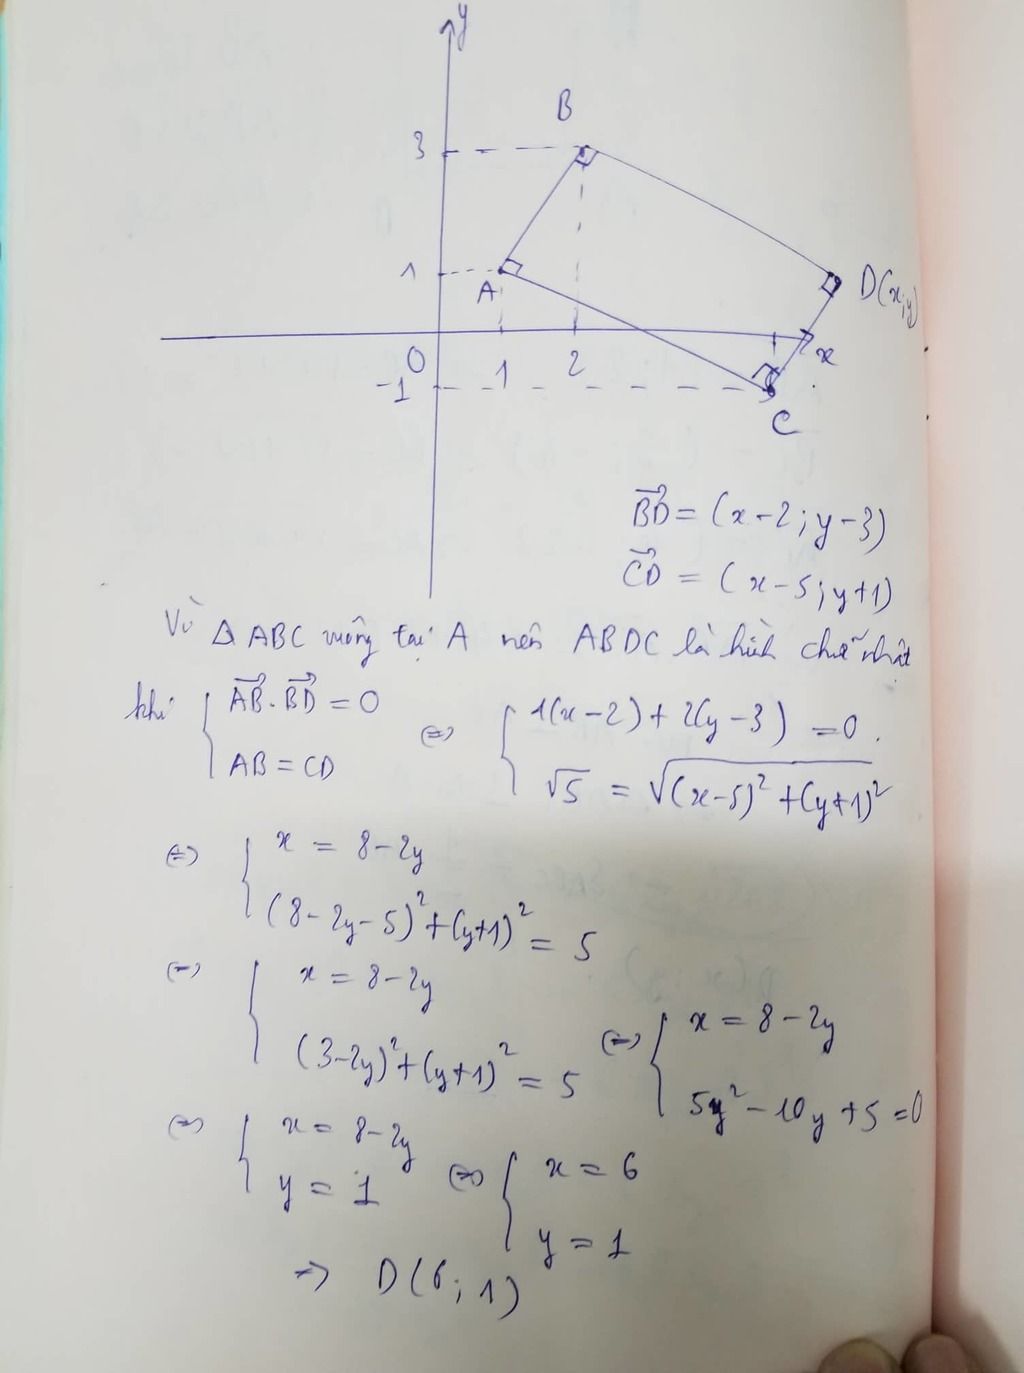 y
B
3
1
A
D(x;y)
0
1
2
x
-1
C
BD = (x-2; y-3)
CD = (x-5; y+1)
Vì Δ ABC vuông tại A nên ABDC là hình chữ nhật
khi { AB . BD = 0 (=) { 1(x-2) + 2(y-3) = 0.
AB = CD √5 = √(x-5)² + (y+1)²
(=) { x = 8-2y
(8-2y-5)² + (y+1)² = 5
(=) { x = 8-2y
(3-2y)² + (y+1)² = 5
(=) { x = 8-2y
5y² - 10y + 5 = 0
(=) { x = 8-2y (=) { x = 6
y = 1 y = 1
=> D(6; 1)